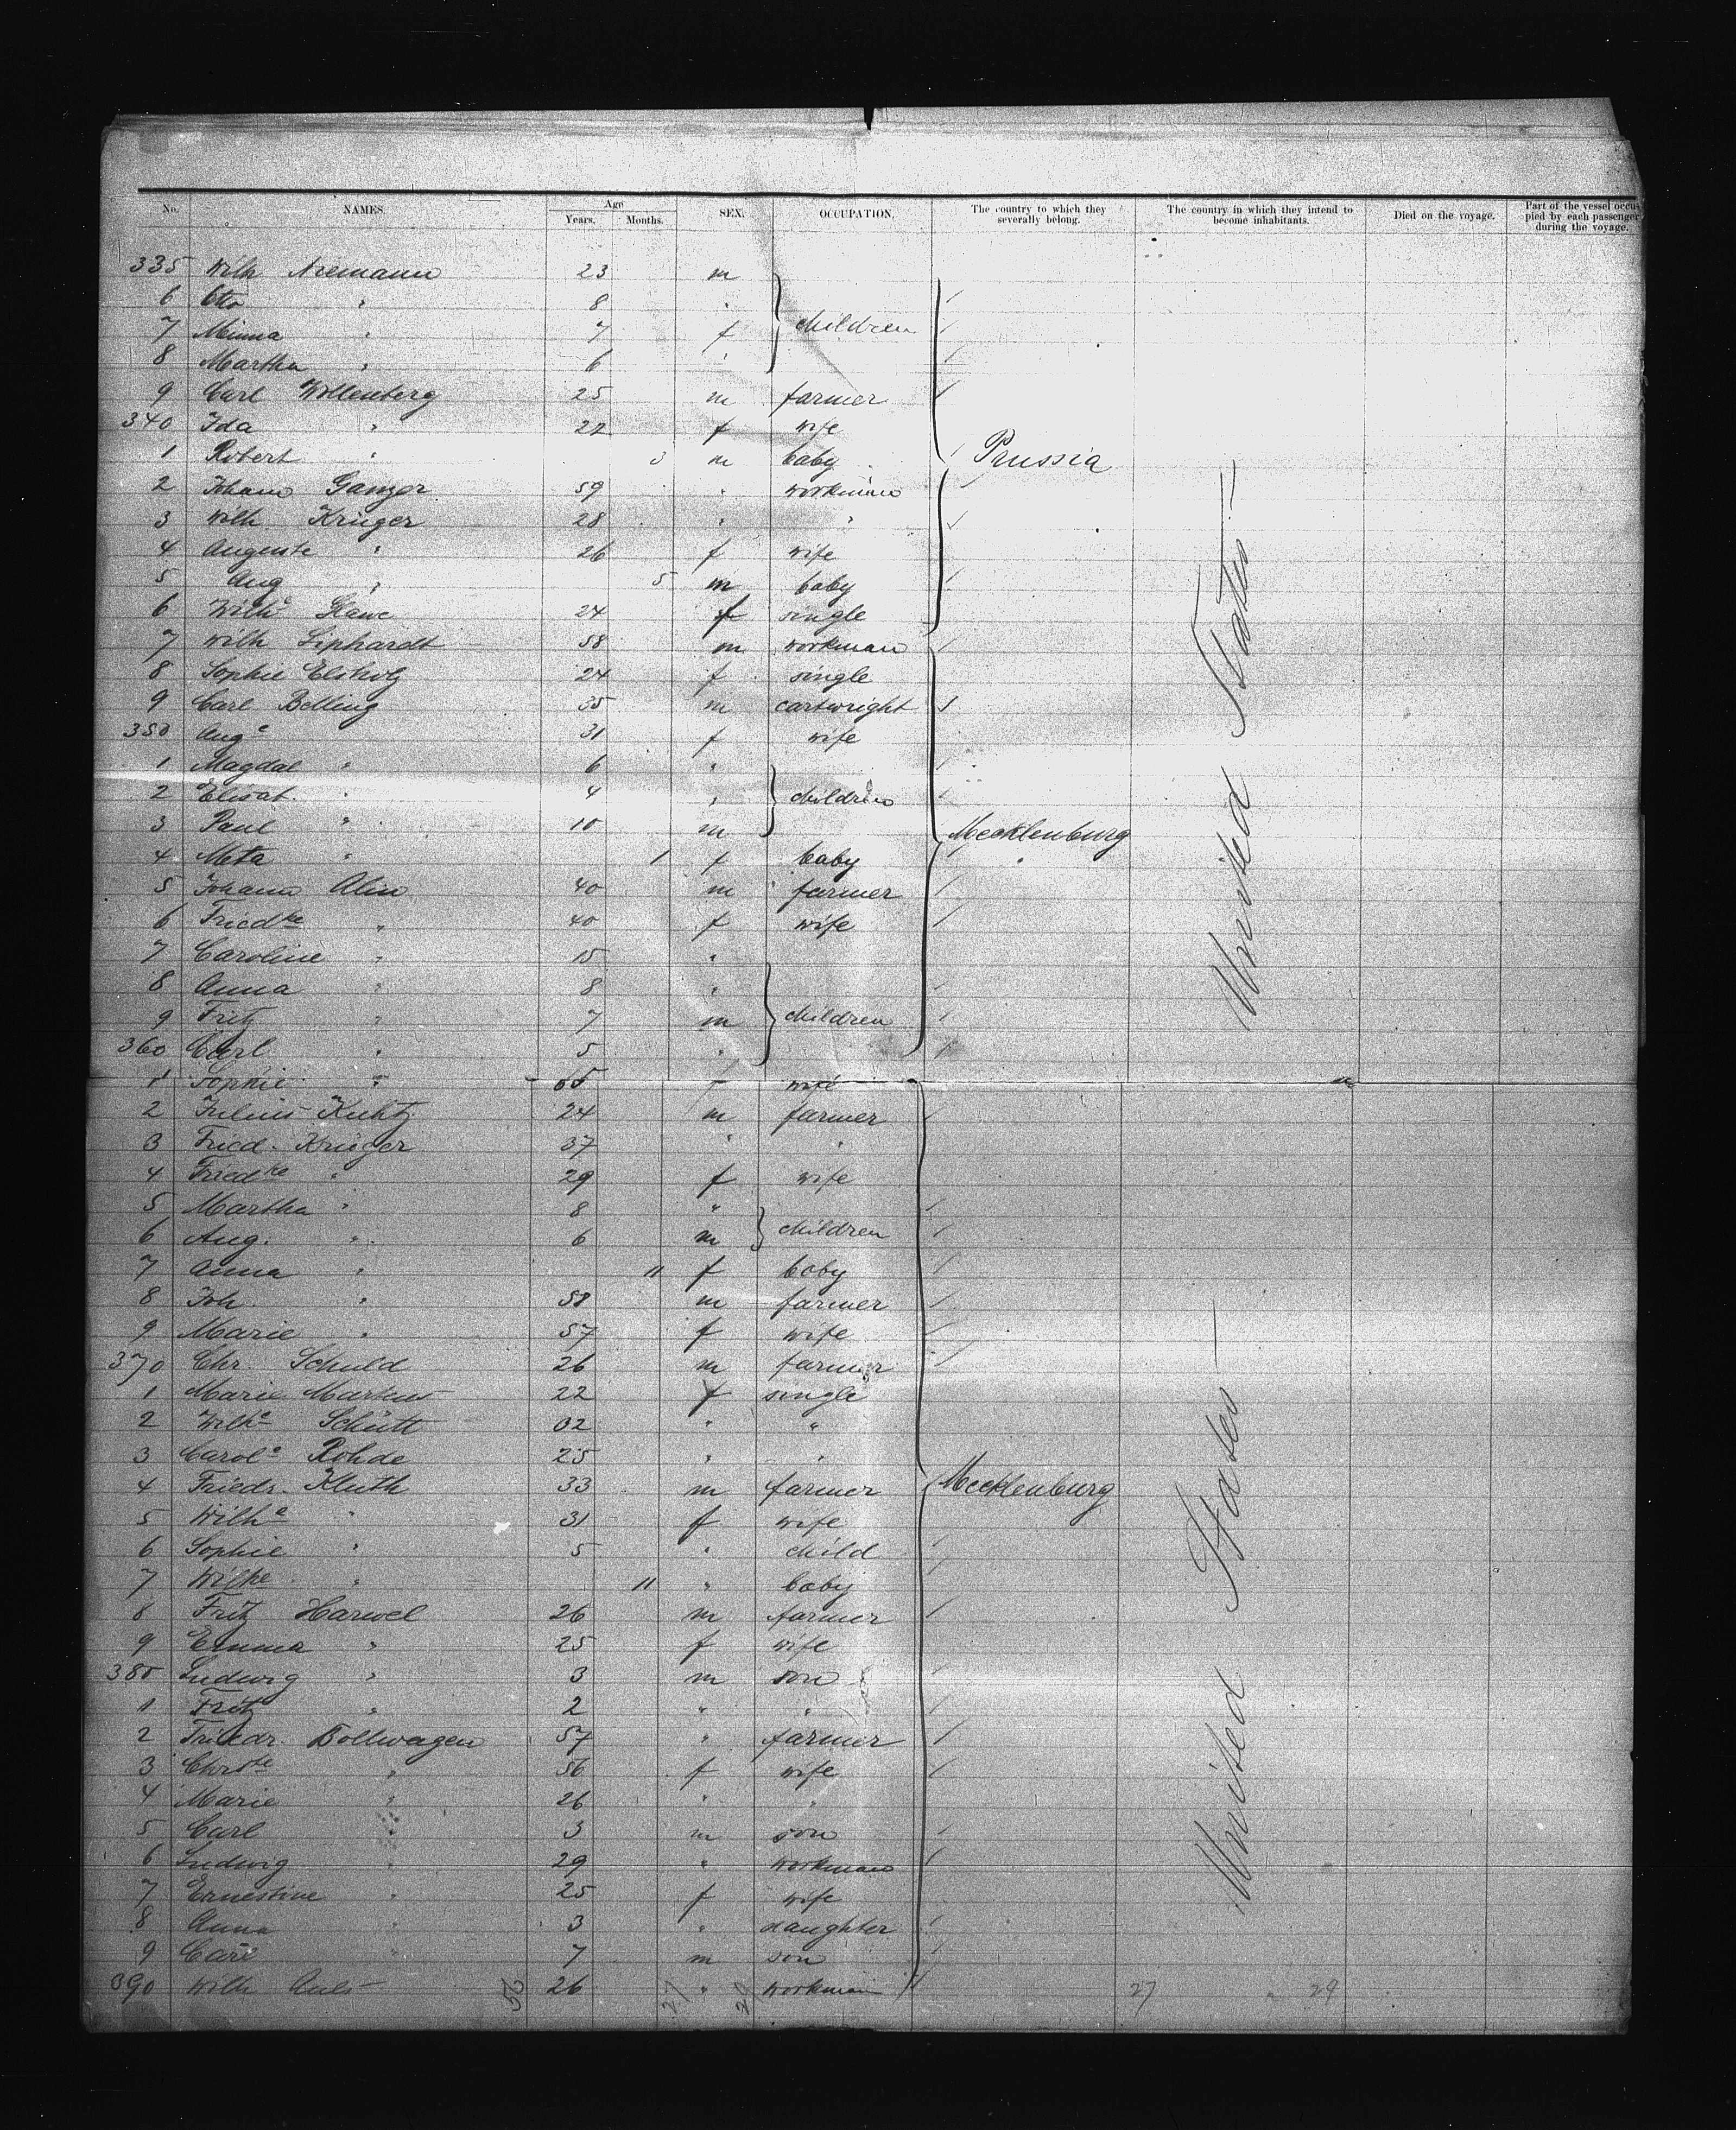 No. NAMES. Age Years. Months. SEX. OCCUPATION. The country to which they severally belong. The country in which they intend to become inhabitants. Died on the voyage. Part of the vessel occupied by each passenger during the voyage.
335 Wilh Niemann 23 m
6 Otto " 8 "
7 Minna " 7 f children
8 Martha " 6 "
9 Carl Wollenberg 25 m farmer
340 Ida " 22 f wife
1 Robert " 3 m baby Prussia
2 Johann Ganzer 59 " workman
3 Wilh. Krüger 28 " "
4 Auguste " 26 f wife
5 Aug " 5 m baby
6 Wilhe 24 f single
7 Wilh Liphardt 58 m workman
8 Sophie 24 f single
9 Carl Belling 35 m cartwright
350 Auge 31 f wife
1 Magdal " 6 "
2 Elisat. " 4 " children
3 Paul " 10 m Mecklenburg
4 Meta " 1 f baby
5 Johann Alm 40 m farmer
6 Friedke " 40 f wife
7 Caroline " 15 "
8 Anna " 8 "
9 Fritz " 7 m children
360 Carl " 5 "
United States
1 Sophie " f wife
2 Julius 24 m farmer
3 Fried. Krüger 37 " "
4 Friedke " 29 f wife
5 Martha " 8 "
6 Aug. " 6 m children
7 Anna " 11 f baby
8 Joh. " 58 m farmer
9 Marie " 57 f wife
370 Chr. Schuld 26 m farmer
1 Marie 22 f single
2 Wilhe Schütt 32 " "
3 Carole Rohde 25 " "
4 Friedr. Kluth 33 m farmer Mecklenburg
5 Wilhe " 31 f wife
6 Sophie " 5 " child
7 Wilhe " 11 " baby
8 Fritz Harwel 26 m farmer
9 Emma " 25 f wife
380 Ludwig " 3 m son
1 Fritz " 2 " "
2 Friedr. Bollwagen 57 " farmer
3 Christe " 56 f wife
4 Marie " 26 " "
5 Carl " 3 m son
6 Ludwig " 29 " workman
7 Ernestine " 25 f wife
8 Anna " 3 " daughter
9 Carl " 7 m son
390 Wilh 26 " workman
United States
27 29